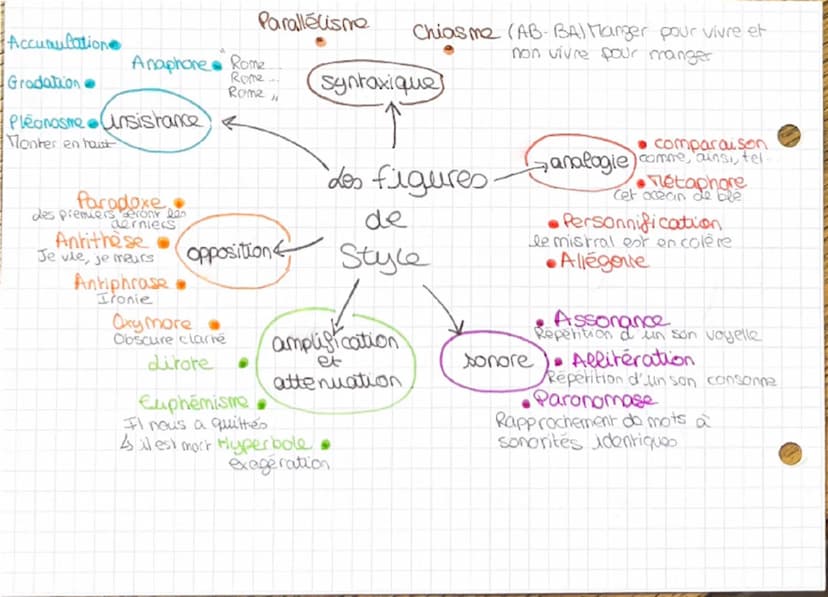 Parallélisme
Chiasme (AB-BA) Manger pour vivre et
non vivre pour manger
syntaxique
Accumulation
Anaphore " Rome...
Rome...
Rome "
Gradation
Pléonasme
Monter en haut
insistance
des figures
de
Style
analogie
comparaison
comme, ainsi, tel
Métaphore
Cet océan de blé
Personnification
le mistral est en colère
Allégorie
Paradoxe
des premiers seront les
derniers
Antithèse
Je vie, je meurs
Antiphrase
Ironie
Oxymore
Obscure clarté
opposition
amplification
et
attenuation
litote
Euphémisme
Il nous a quittés
↳ il est mort
Hyperbole
exagération
sonore
Assonance
Répétition d'un son voyelle
Allitération
Répétition d'un son consonne
Paronomase
Rapprochement de mots à
sonorités identiques